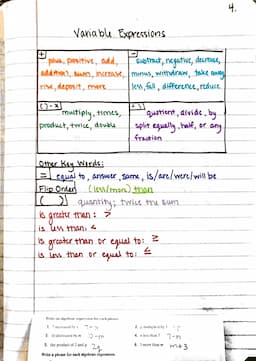 4.
Variable Expressions
+
plus, positive, add,
addition, sum, increase,
rise, deposit, more
-
subtract, negative, decrease,
minus, withdraw, take away
less, fall, difference, reduce
( ) · x
multiply, times,
product, twice, double
quotient, divide, by
split equally, half, or any
fraction
Other Key Words:
= equal to, answer, same, is/are/were/will be
Flip Order (less/more) than
( ) quantity; twice the sum
is greater than: >
is less than: <
is greater than or equal to: ≥
is less than or equal to: ≤
Write an algebraic expression for each phrase.
5. the product of 2 and g 2g
6. 3 more than m m+3
Write a phrase for each algebraic expression.